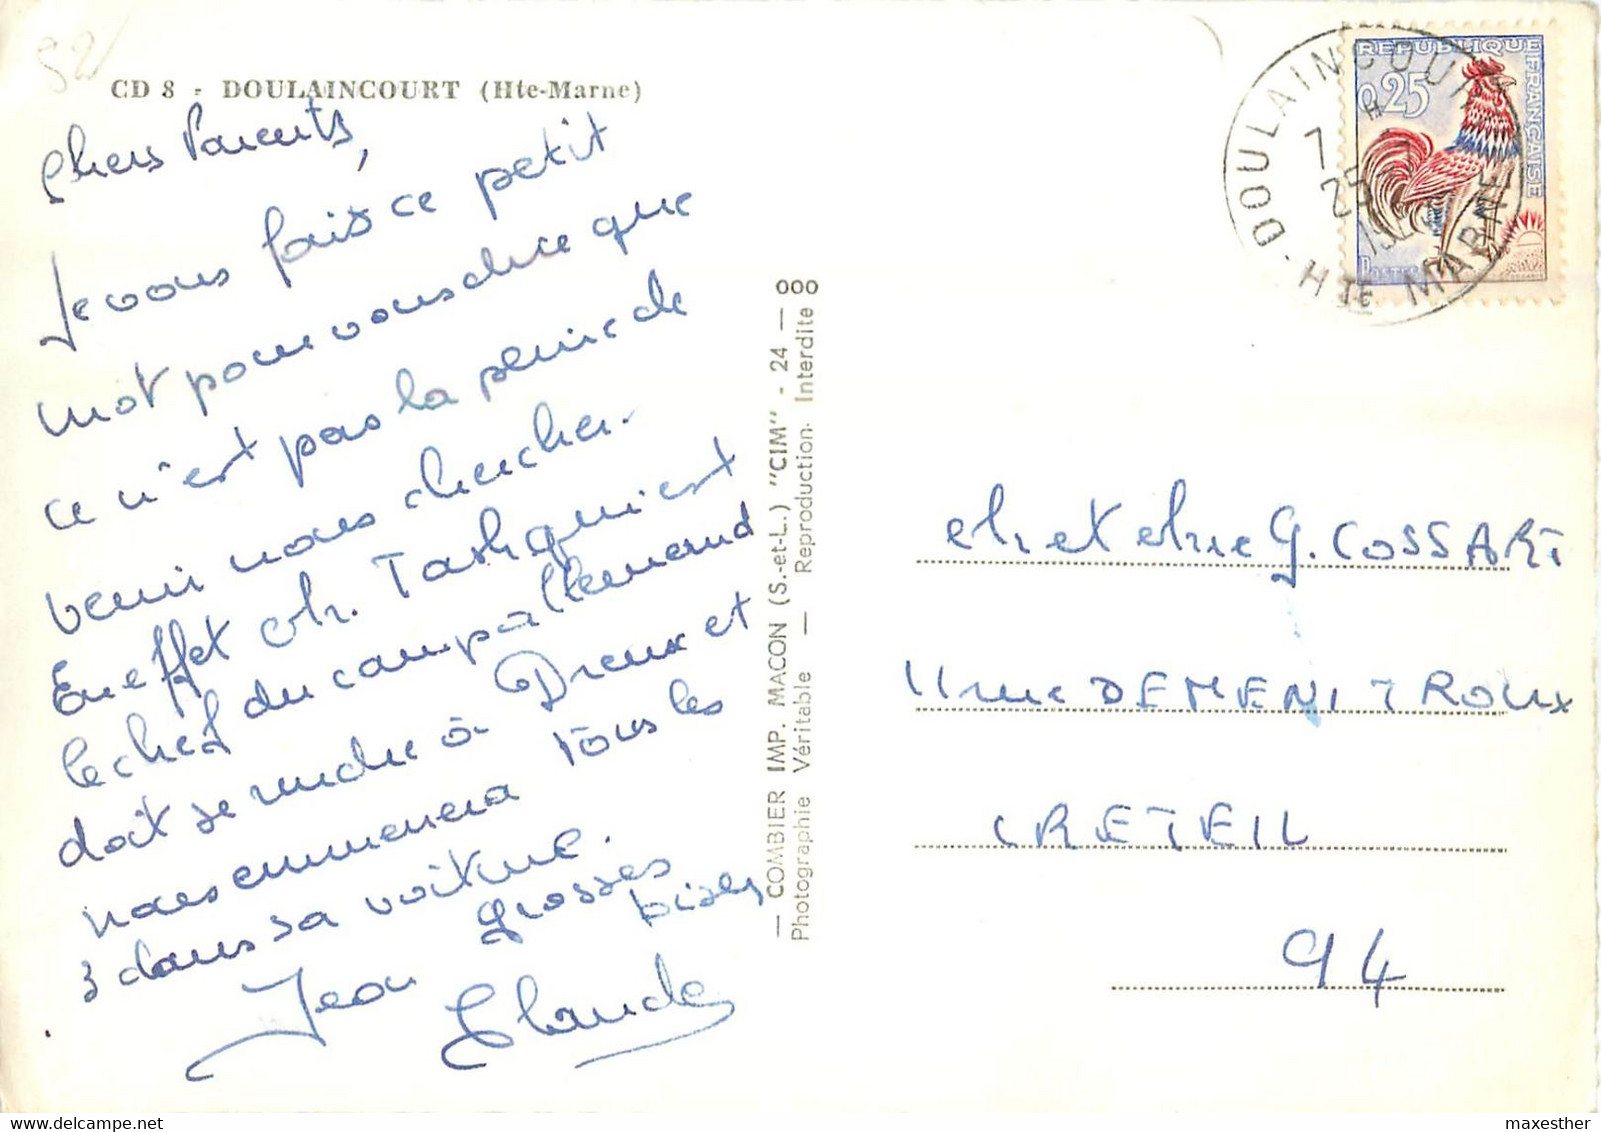 52
CD 8 - DOULAINCOURT (Hte-Marne)
Chers Parents,
Je vous fais ce petit
mot pour vous dire que
ce n'est pas la peine de
venir nous chercher.
En effet Mr. Tashquiest
le chef du camp allemand
doit se rendre à Dreux et
nous emmenera tous les
3 dans sa voiture.
grosses
bises
Jean Claude
— COMBIER IMP. MACON (S.-et-L.) "CIM" - 24 — 000
Photographie Véritable — Reproduction Interdite
REPUBLIQUE
FRANÇAISE
0,25
Postes
DOULAINCOURT
7 H
25
HTE MARNE
Mr et Mme G. COSSART
11 rue DEMENITROUX
CRETEIL
94
delcampe.net
maxesther